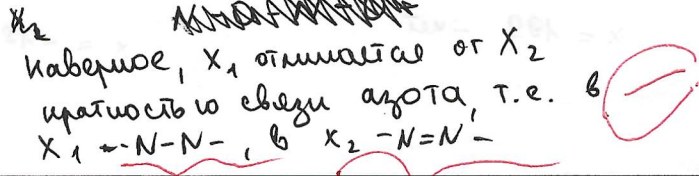 X₂
Наверное, X₁ отличается от X₂
кратностью связи азота, т.е. в
X₁ --N-N-, в X₂ -N=N-